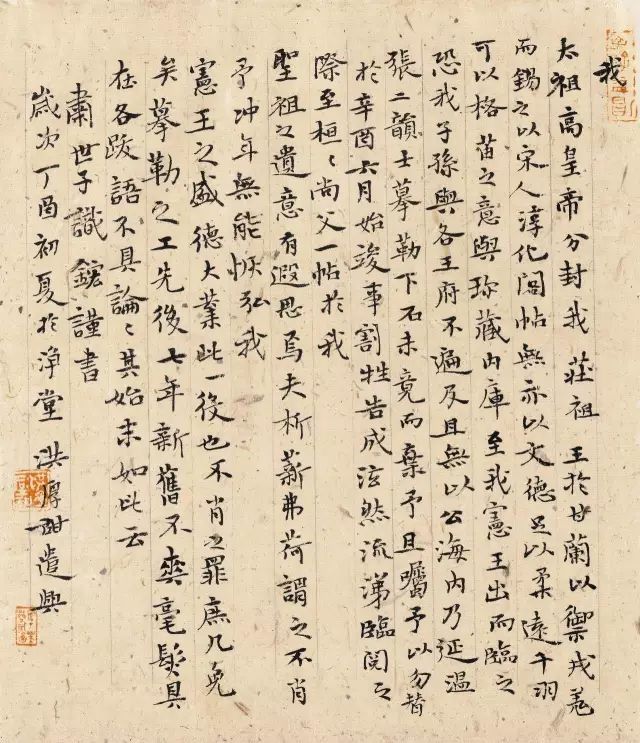 我
太祖高皇帝分封我 莊祖 王於甘蘭以禦戎羌
而錫之以宋人淳化閣帖無亦以文德足以柔遠干羽
可以格苗之意與珎藏內庫至我憲王出而臨之
恐我子孫與各王府不遍及且無以公海內乃延溫
張二韻士摹勒下石未竟而棄予且囑予以勿替
於辛酉六月始竣事割牲告成泫然流涕臨閱之
際至桓〻尚父一帖於我
聖祖之遺意有遐思焉夫析薪弗荷謂之不肖
予冲年無能恢弘我
憲王之盛德大業此一役也不肖之罪庶几免
矣摹勒之工先後七年新舊不爽毫髮具
在各跋語不具論〻其始末如此云
肅世子識鋐謹書
歲次丁酉初夏於淨堂 洪厚甜遣興